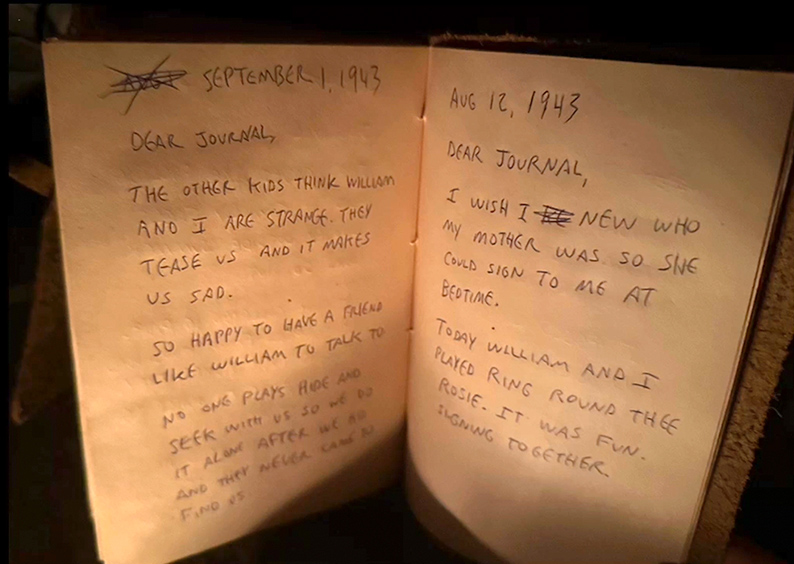 SEPTEMBER 1, 1943
DEAR JOURNAL,
THE OTHER KIDS THINK WILLIAM
AND I ARE STRANGE. THEY
TEASE US AND IT MAKES
US SAD.
SO HAPPY TO HAVE A FRIEND
LIKE WILLIAM TO TALK TO
NO ONE PLAYS HIDE AND
SEEK WITH US SO WE DO
IT ALONE AFTER WE
AND THEY NEVER CAME
FIND US
AUG 12, 1943
DEAR JOURNAL,
I WISH I NEW WHO
MY MOTHER WAS SO SHE
COULD SIGN TO ME AT
BEDTIME.
TODAY WILLIAM AND I
PLAYED RING ROUND THEE
ROSIE. IT WAS FUN.
SIGNING TOGETHER